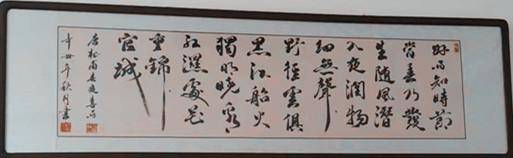 好雨知時節
當春乃發
生随風潛
入夜潤物
細無聲
野徑雲俱
黑江船火
獨明曉看
紅濕處花
重錦
官城
唐杜甫春夜喜雨
辛丑年秋月書